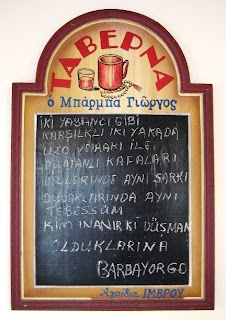 ΤΑΒΕΡΝΑ
ὁ Μπάρμπα Γιῶργος
İKİ YABANCI GİBİ
KARŞILIKLI İKİ YAKADA
UZO VE RAKI İLE
DUMANLI KAFALARI
DİLLERİNDE AYNI ŞARKI
DUDAKLARINDA AYNI
TEBESSÜM
KİM İNANIR Kİ DÜŞMAN
OLDUKLARINA
BARBAYORGO
Αγρίδια ΙΜΒΡΟΥ